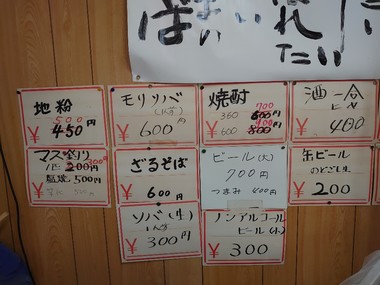 ばまいれしい
たい
地粉
500
¥ 450円
モリソバ
(1人前)
¥ 600円
焼酎
700
360 600円
400
¥ 600 800
酒一合
ビン
¥ 400
マス釣り
300
1匹 200円
塩焼 500円
ざるそば
¥ 600円
ビール(大)
700円
つまみ 400円
缶ビール
のどごし生
¥ 200
ソバ(生)
1人前
¥ 300円
ノンアルコール
ビール(小)
¥ 300